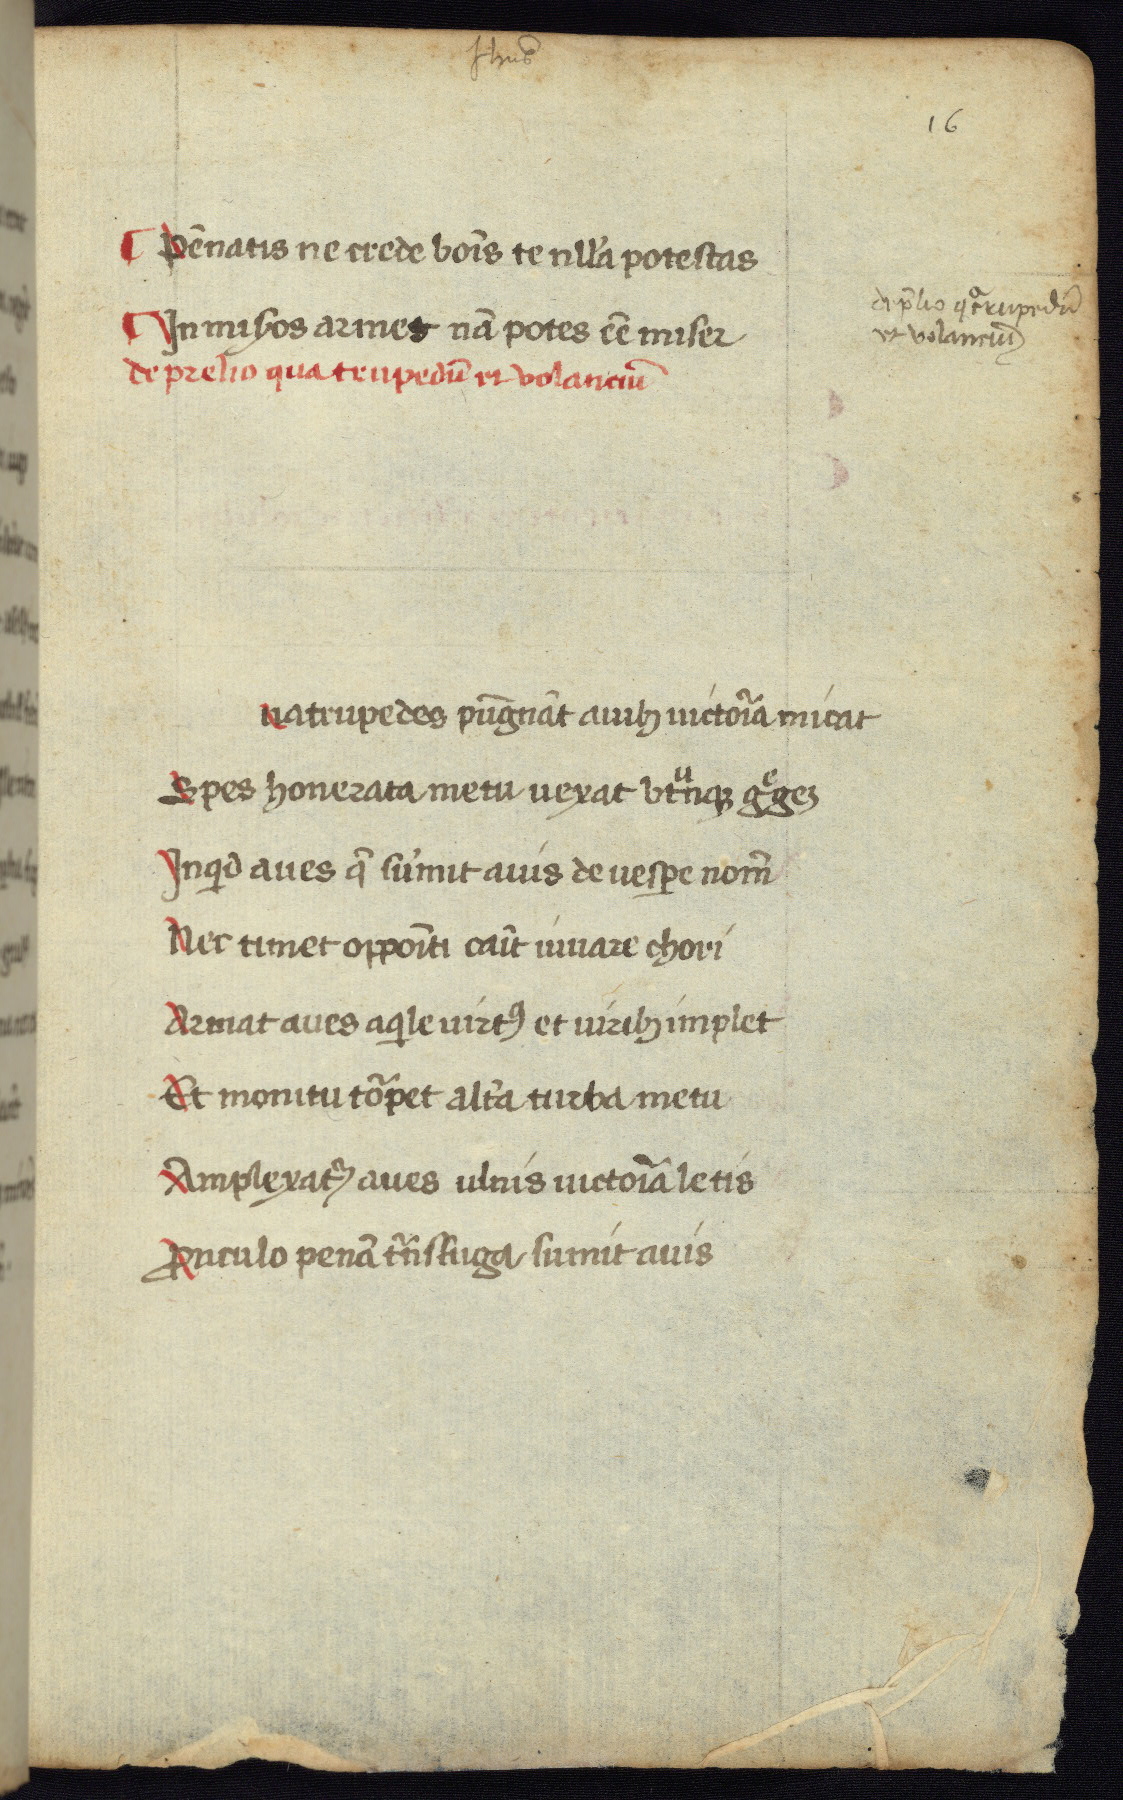 Jhus
16
¶ Pēnatis ne crede boīs te nll'a potestas
¶ In misos armet nā potes eē miser
de prelio qua trupedū et volanciū
de p̄lio qͣtrupedū
et volanciū
uatrupedes pūgnāt auibꝫ uictoīa micat
Spes honerata metu uexat vtͧnqꝫ gͤgeꝫ
Inqͥd aues q̄ sūmit auis de uesꝑe nom̄
Nec timet oppoīti caūt iuuare chori
Armat aues aqͥle uirtꝰ et uiribꝫ implet
Et monitu tōrpet alt'a turba metu
Amplexat᷑ aues ulnis uictoīa letis
Pro uiculo penā trn̄sfuga sumit auis